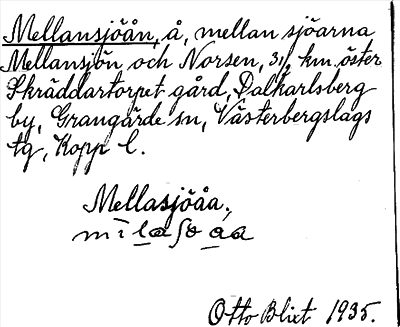 Mellansjöån, å, mellan sjöarna
Mellansjön och Norsen, 3½ km öster
Skräddartorpet gård, Dalkarlsberg
by, Grangärde sn, Västerbergslags
tg, Kopp l.
Mellasjöåa,
Otto Blixt 1935.